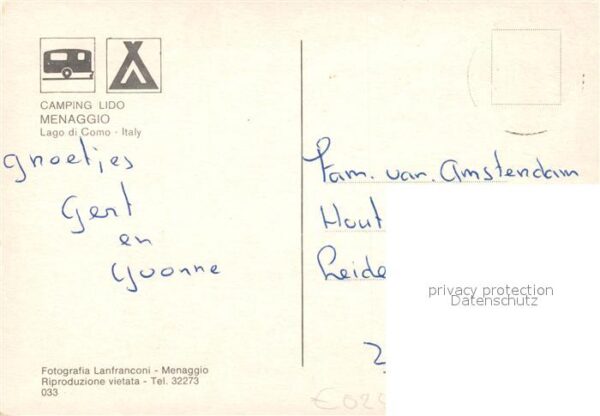 CAMPING LIDO
MENAGGIO
Lago di Como - Italy
groetjes
Gert
en
Yvonne
Fotografia Lanfranconi - Menaggio
Riproduzione vietata - Tel. 32273
033
Fam. van. Amstendam
Hout
Leide
privacy protection
Datenschutz